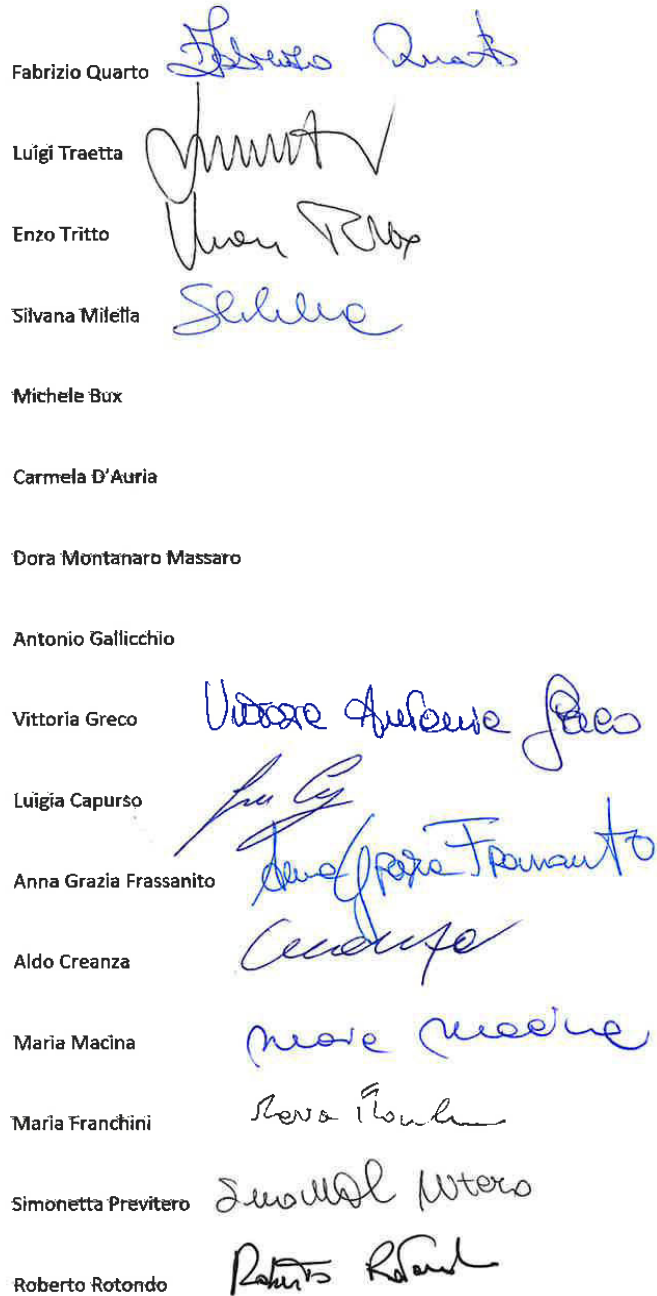 Fabrizio Quarto Fabrizio Quarto
Luigi Traetta
Enzo Tritto
Silvana Miletta
Michele Bux
Carmela D'Auria
Dora Montanaro Massaro
Antonio Gallicchio
Vittoria Greco Vittoria Antonia Greco
Luigia Capurso
Anna Grazia Frassanito Anna Grazia Frassanito
Aldo Creanza Creanza
Maria Macina Maria Macina
Maria Franchini
Simonetta Previtero
Roberto Rotondo Roberto Rotondo